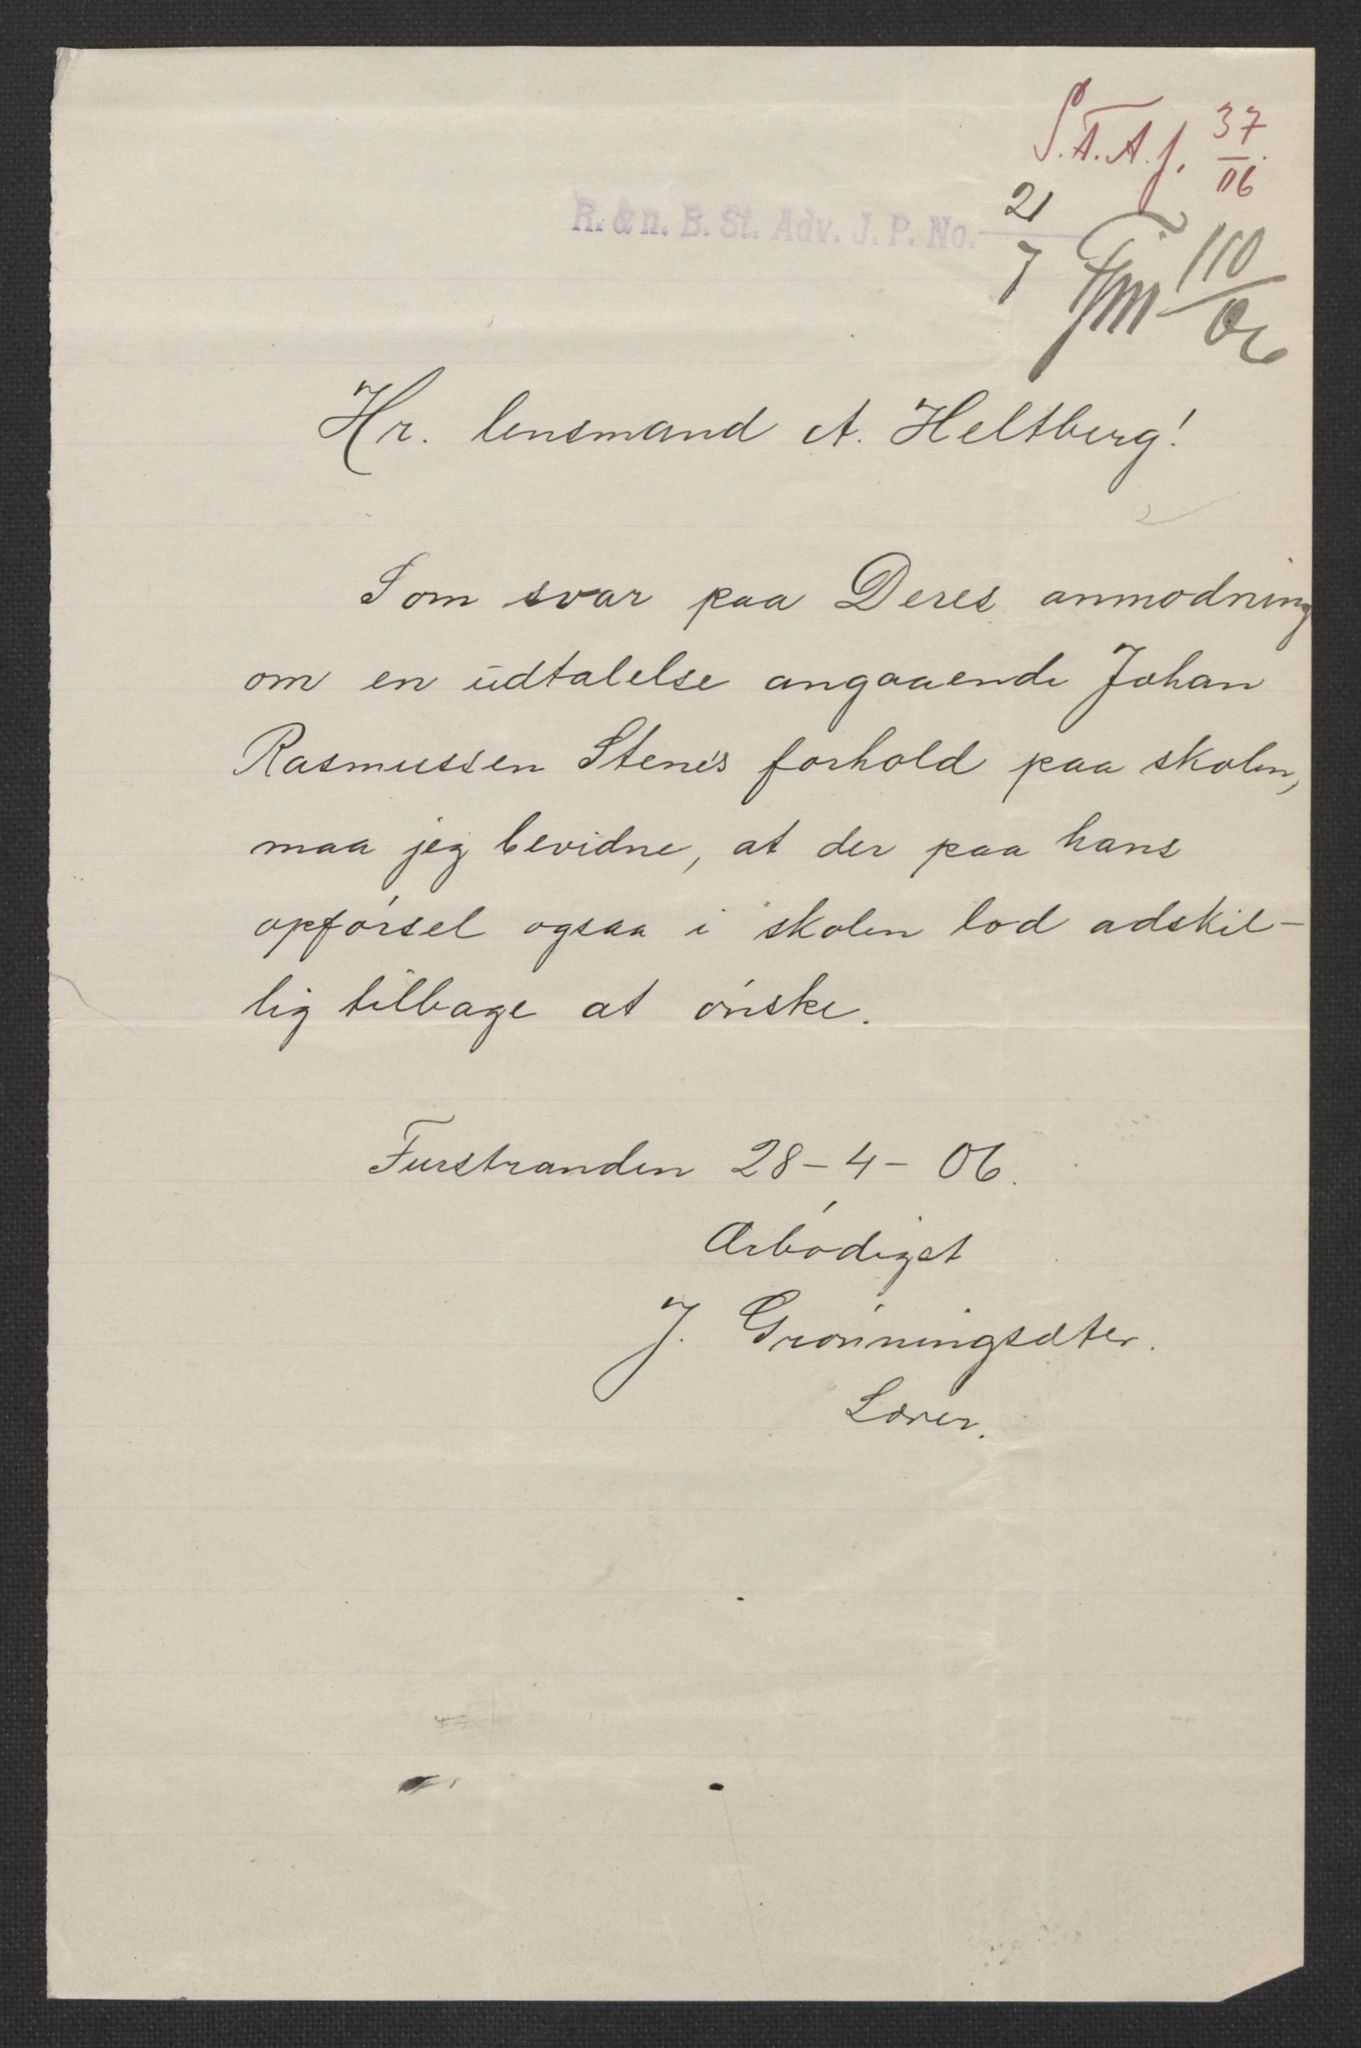 S.A.A.J. 37/06
R. & n. B. St. Adv. J. P. No. 21/7
110/06
Hr. lensmand A. Heltberg!
Som svar paa Deres anmodning
om en udtalelse angaaende Johan
Rasmussen Stene's forhold paa skolen,
maa jeg bevidne, at der paa hans
opførsel ogsaa i skolen lod adskil-
lig tilbage at ønske.
Furstranden 28-4-06.
Ærbødigst
J. Grønningsæter.
Lærer.